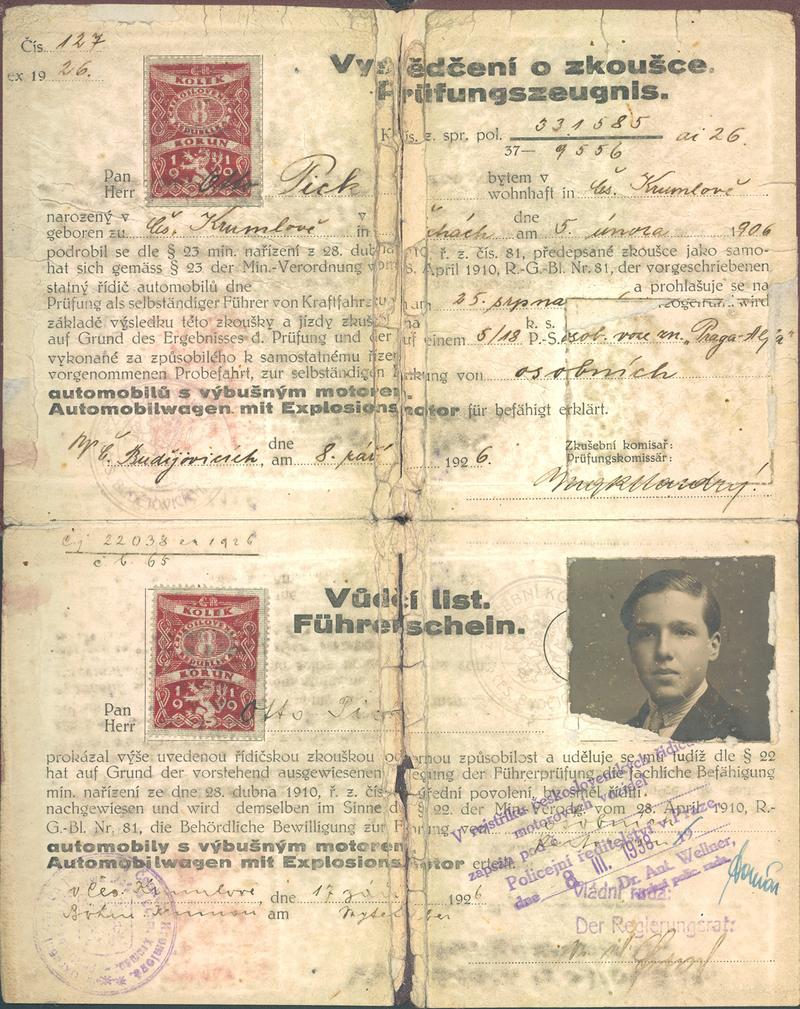 Čís. 127
ex 1926.
KOLEK
8
KORUN
1919
Vysvědčení o zkoušce.
Prüfungszeugnis.
K čís. z. spr. pol. 331585 ai 26
37— 9556
Pan
Herr Otto Pick
bytem v
wohnhaft in Čs. Krumlově
narozený v
geboren zu Čs. Krumlově v
in Čechách dne
am 5. února 1906
podrobil se dle § 23 min. nařízení z 28. dubna 1910, ř. z. čís. 81, předepsané zkoušce jako samo-
hat sich gemäss § 23 der Min.-Verordnung vom 28. April 1910, R.-G.-Bl. Nr. 81, der vorgeschriebenen
statný řídič automobilů dne
Prüfung als selbständiger Führer von Kraftfahrzeugen am 25. srpna a prohlašuje se na
wird
základě výsledku této zkoušky a jízdy zkušební na
auf Grund des Ergebnisses d. Prüfung und der auf einem 5/18 k. s.
P.-S. osob. voze zn. "Praga-Alfa"
vykonaté za způsobilého k samostatnému řízení
vorgenommenen Probefahrt, zur selbständigen Lenkung von osobních
automobilů s výbušným motorem.
Automobilwagen mit Explosionsmotor für befähigt erklärt.
V Č. Budějovicích, dne
am 8. září 1926.
Zkušební komisař:
Prüfungskommissär:
Čj 22038 ex 1926
č b. 65
KOLEK
8
KORUN
1919
Vůdčí list.
Führerschein.
Pan
Herr Otto Pick
prokázal výše uvedenou řídičskou zkouškou odbornou způsobilost a uděluje se mu tudíž dle § 22
hat auf Grund der vorstehend ausgewiesenen Ablegung der Führerprüfung die fachliche Befähigung
min. nařízení ze dne 28. dubna 1910, ř. z. čís. úřední povolení, by směl říditi
nachgewiesen und wird demselben im Sinne des § 22. der Min. Verordg. vom 28. April 1910, R.-
G.-Bl. Nr. 81, die Behördliche Bewilligung zur Führung osobními
automobily s výbušným motorem
Automobilwagen mit Explosionsmotor erteilt.
V rejstříku československých řidičů
motorových vozidel
zapsán pod
Policejní ředitelství v Praze
dne 8. III. 1938
Dr. Ant. Wellner,
v Čes. Krumlově, dne 17 září 1926
Böhm. Krumau am September
Vládní rada:
Der Regierungsrat: